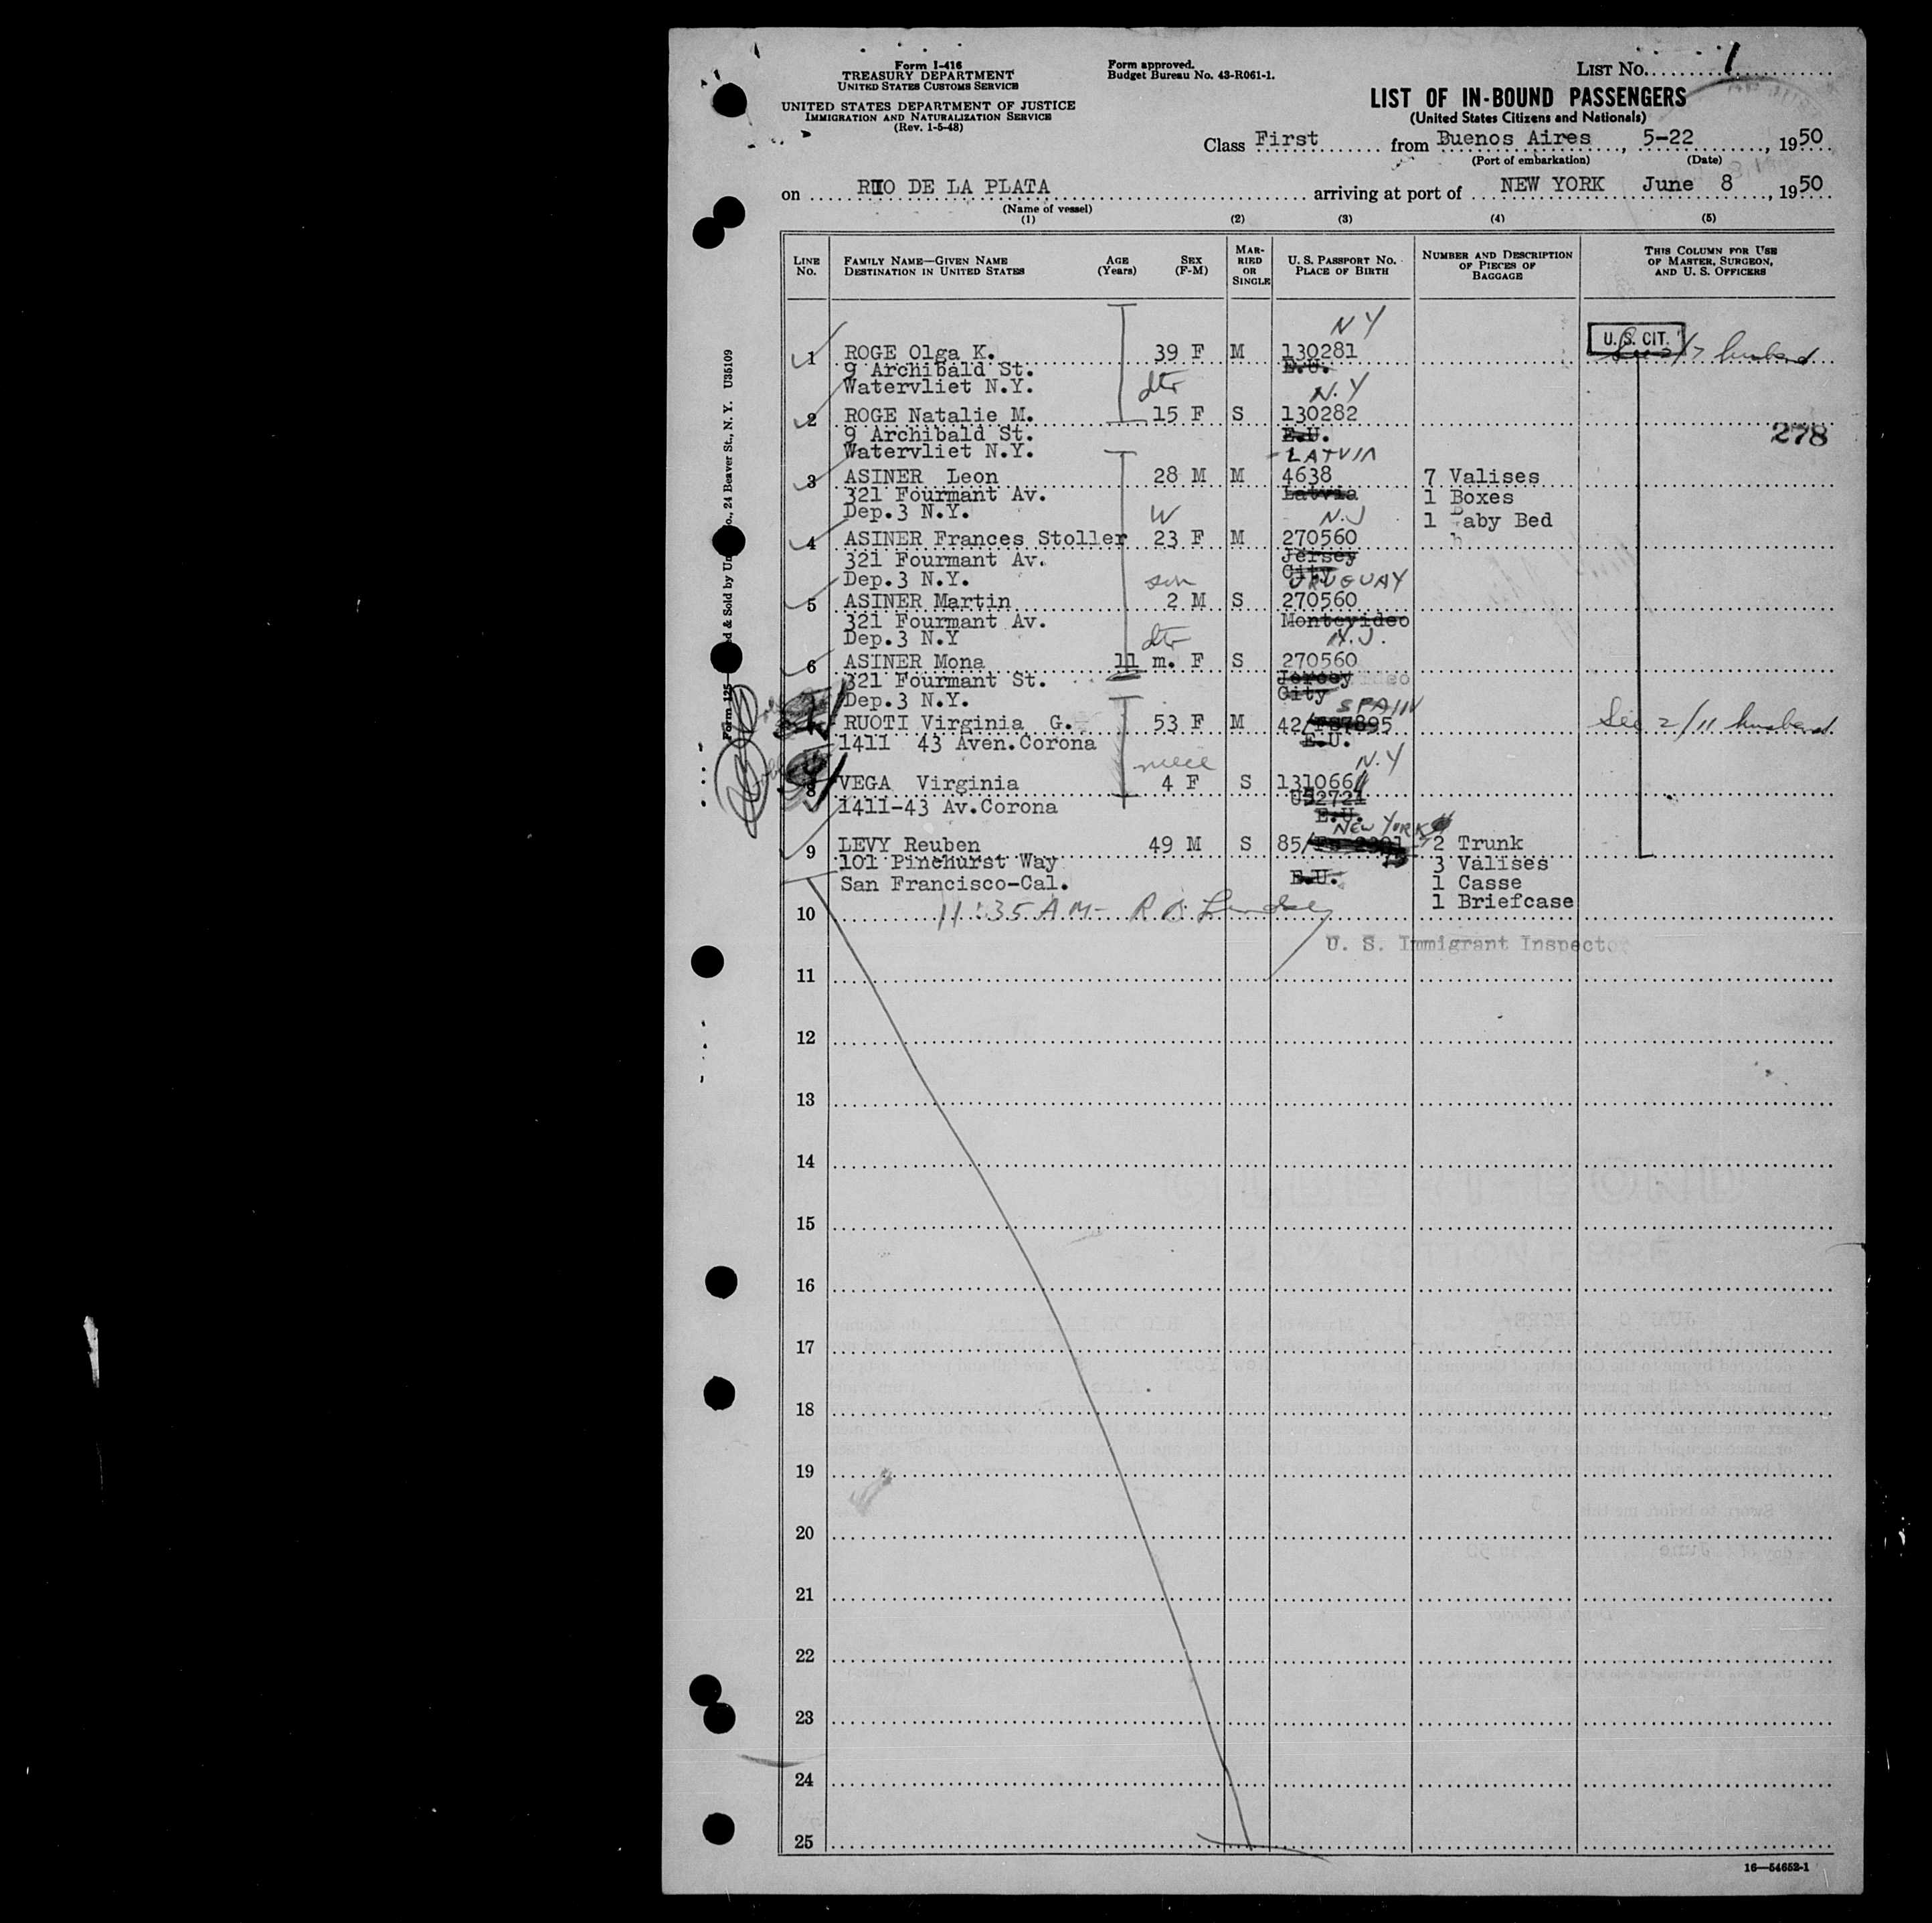 Form I-416
TREASURY DEPARTMENT
UNITED STATES CUSTOMS SERVICE
UNITED STATES DEPARTMENT OF JUSTICE
IMMIGRATION AND NATURALIZATION SERVICE
(Rev. 1-5-48)
Form approved.
Budget Bureau No. 43-R061-1.
LIST No. 1
LIST OF IN-BOUND PASSENGERS
(United States Citizens and Nationals)
Class First from Buenos Aires, 5-22, 1950
(Port of embarkation) (Date)
on RIO DE LA PLATA arriving at port of NEW YORK June 8, 1950
(Name of vessel)
(1) (2) (3) (4) (5)
LINE No. FAMILY NAME—GIVEN NAME DESTINATION IN UNITED STATES AGE (Years) SEX (F-M) MARRIED OR SINGLE U. S. PASSPORT No. PLACE OF BIRTH NUMBER AND DESCRIPTION OF PIECES OF BAGGAGE THIS COLUMN FOR USE OF MASTER, SURGEON, AND U. S. OFFICERS
NY
U. S. CIT.
1 ROGE Olga K. 39 F M 130281 husband
9 Archibald St. E.U.
Watervliet N.Y. dtr N.Y
2 ROGE Natalie M. 15 F S 130282
9 Archibald St. E.U. 278
Watervliet N.Y. LATVIA
3 ASINER Leon 28 M M 4638 7 Valises
321 Fourmant Av. Latvia 1 Boxes
Dep.3 N.Y. W N.J 1 Baby Bed
4 ASINER Frances Stoller 23 F M 270560
321 Fourmant Av. Jersey
Dep.3 N.Y. son City URUGUAY
5 ASINER Martin 2 M S 270560
321 Fourmant Av. Montevideo
Dep.3 N.Y dtr N.J.
6 ASINER Mona 11 m. F S 270560
321 Fourmant St. Jersey
Dep.3 N.Y. City SPAIN
RUOTI Virginia G. 53 F M 42/ See 2/11 husband
1411 43 Aven.Corona E.U.
niece N.Y
8 VEGA Virginia 4 F S 131066
1411-43 Av.Corona U52721
E.U.
NEW YORK
9 LEVY Reuben 49 M S 85/ 2 Trunk
101 Pinehurst Way 3 Valises
San Francisco-Cal. E.U. 1 Casse
1 Briefcase
10 11:35 AM-
U. S. Immigrant Inspector
11
12
13
14
15
16
17
18
19
20
21
22
23
24
25
16—54652-1
24 Beaver St., N. Y. U35109